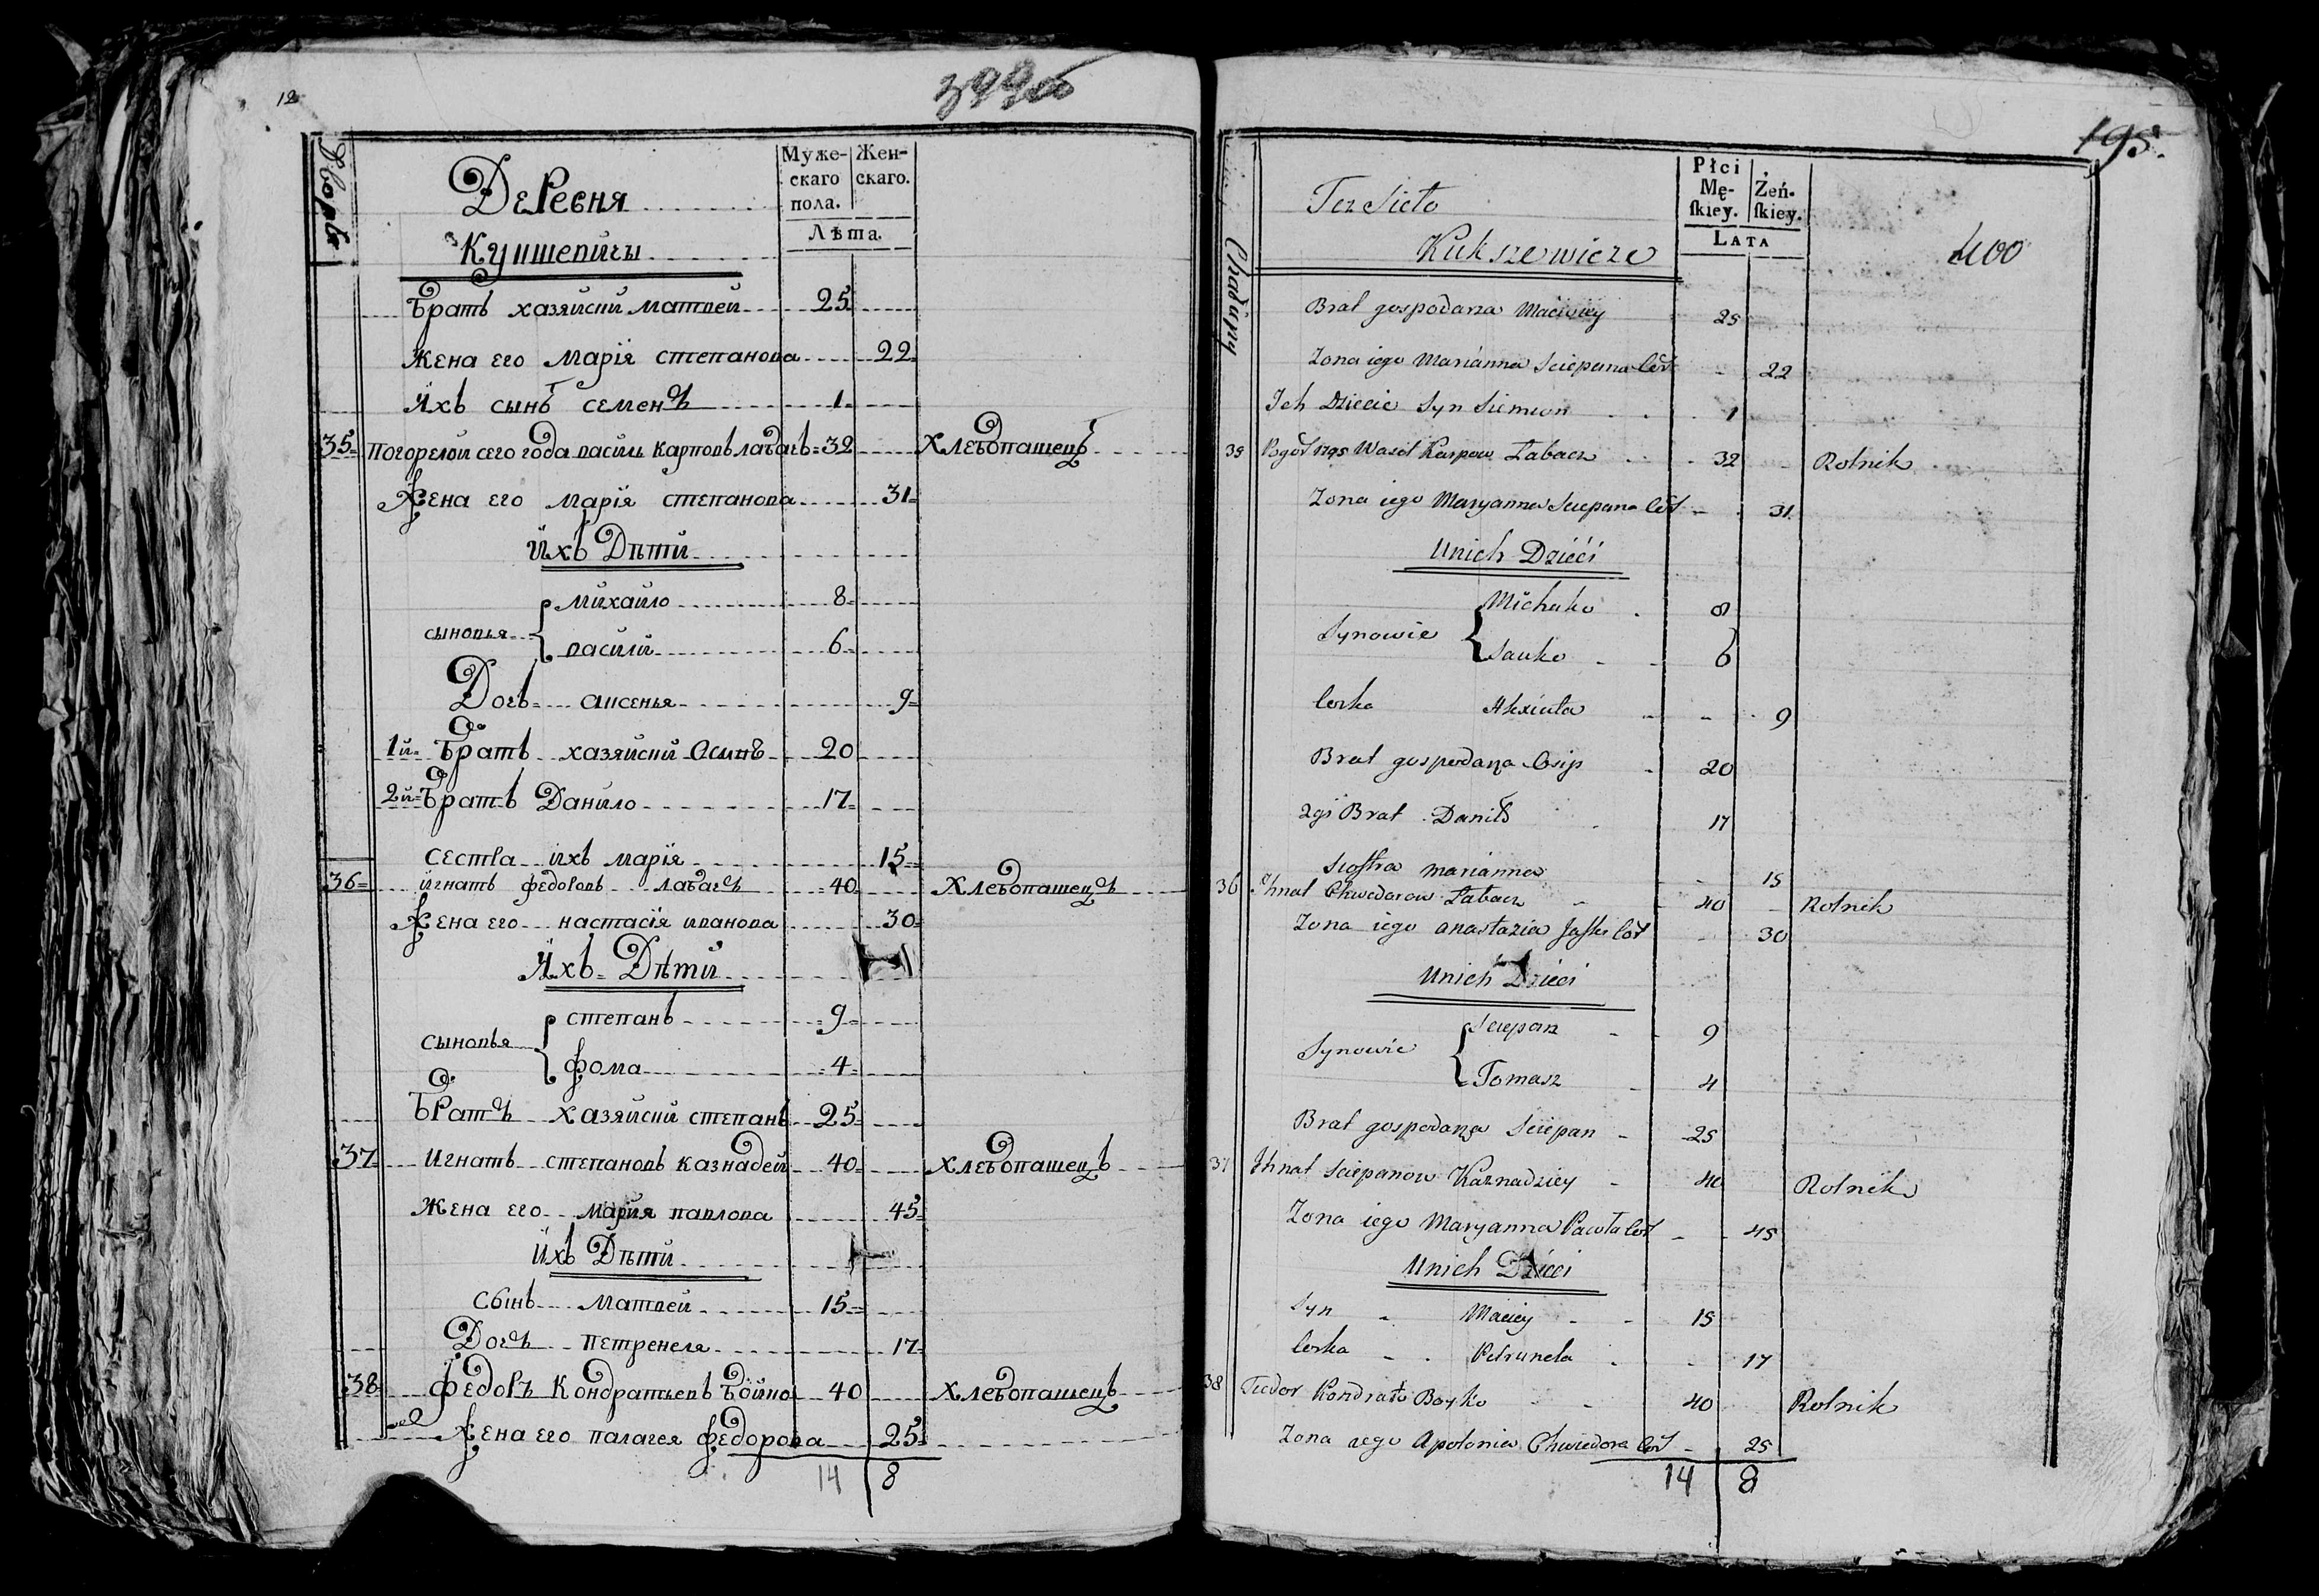 12
399об
Дворы
Деревня
Кукшевичи
Муже-
скаго
пола.
Жен-
скаго.
Лѣта.
Братъ хазяйский матвей 25
Жена его марія степанова 22
Ихъ сынъ семенъ 1
35 погорелой сего года василь карповъ лабачъ 32 Хлебопашецъ
Жена его марія степанова 31
ихъ Дѣти
сыновья { михайло 8
василий 6
Дочь аксенья 9
1й Братъ хазяйский Осипъ 20
2й Братъ Данило 17
сестра ихъ марія 15
36 игнатъ федоровъ лабачъ 40 Хлебопашецъ
Жена его настасія иванова 30
Ихъ Дѣти
сыновья { степанъ 9
фома 4
Братъ хазяйский степанъ 25
37 Игнатъ степановъ казнадей 40 Хлебопашецъ
Жена его марія павлова 45
ихъ Дѣти
Сынъ матвей 15
Дочъ петренеля 17
38 федоръ Кондратьевъ Бойко 40 Хлебопашецъ
Жена его палагея федорова 25
14 8
195.
400
Chałupy
Tez Sioło
Kukszewicze
Płci
Mę-
ſkiey.
Żeń-
ſkiey.
LATA
Brat gospodarza Maciey 25
Zona iego Marianna Sciepana Cór 22
Ich Dziecie Syn Siemion 1
35 Pogoł 1795 Wasil Karpow Łabacz 32 Rolnik
Zona iego Maryanna Sciepana Cór 31
Unich Dzieci
Synowie { Michałko 8
Sauko 6
Corka Akxiuta 9
Brat gospodarza Osip 20
2gi Brat Daniło 17
Siostra marianna 15
36 Ihnat Chwedorow Łabacz 40 Rolnik
Zona iego anastazia Jaſka Cór 30
Unich Dzieci
Synowie { Sciepan 9
Tomasz 4
Brat gospodarza Sciepan 25
37 Ihnat Sciepanow Kaznadziey 40 Rolnik
Zona iego Maryanna Pawła Cór 45
Unich Dzieci
Syn Maciey 15
Corka Petrunela 17
38 Teodor Kondrato Boyko 40 Rolnik
Zona iego Apolonia Chwiedora Cór 25
14 8